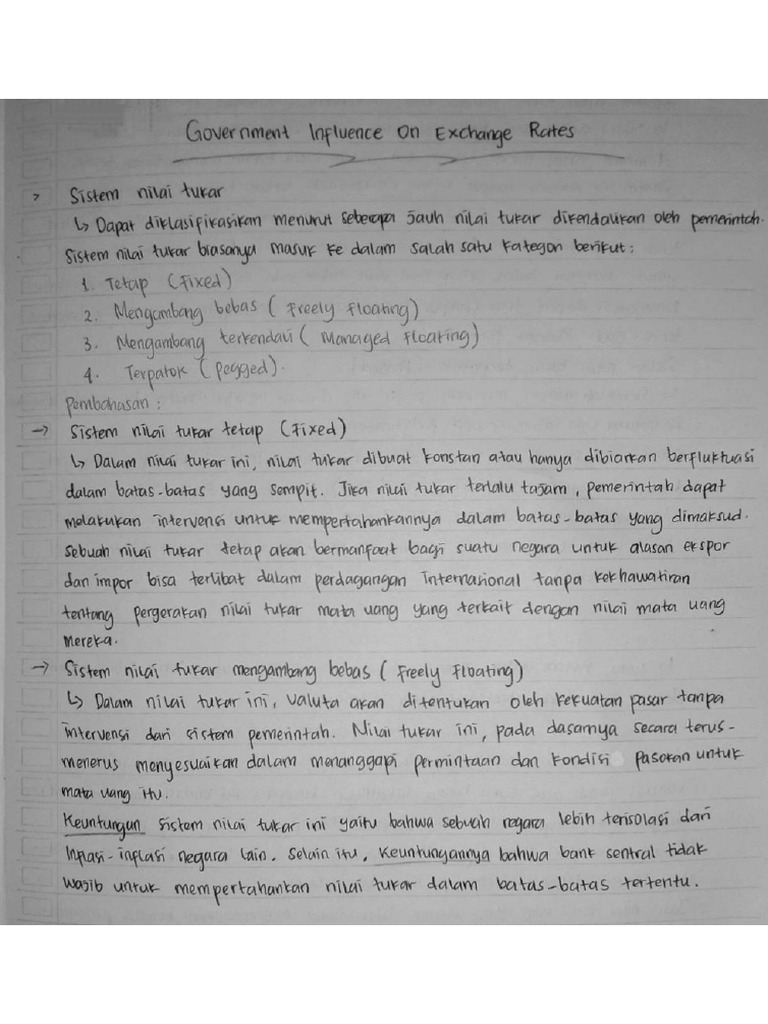 Government Influence On Exchange Rates
> Sistem nilai tukar
↳ Dapat diklasifikasikan menurut seberapa jauh nilai tukar dikendalikan oleh pemerintah.
Sistem nilai tukar biasanya masuk ke dalam salah satu kategori berikut :
1. Tetap (Fixed)
2. Mengambang bebas ( Freely Floating)
3. Mengambang terkendali ( Managed Floating)
4. Terpatok ( Pegged).
Pembahasan :
→ Sistem nilai tukar tetap (Fixed)
↳ Dalam nilai tukar ini, nilai tukar dibuat konstan atau hanya dibiarkan berfluktuasi
dalam batas-batas yang sempit. Jika nilai tukar terlalu tajam, pemerintah dapat
melakukan intervensi untuk mempertahankannya dalam batas-batas yang dimaksud.
Sebuah nilai tukar tetap akan bermanfaat bagi suatu negara untuk alasan ekspor
dan impor bisa terlibat dalam perdagangan Internasional tanpa kekhawatiran
tentang pergerakan nilai tukar mata uang yang terkait dengan nilai mata uang
mereka.
→ Sistem nilai tukar mengambang bebas ( Freely Floating)
↳ Dalam nilai tukar ini, valuta akan ditentukan oleh kekuatan pasar tanpa
intervensi dari sistem pemerintah. Nilai tukar ini, pada dasarnya secara terus-
menerus menyesuaikan dalam menanggapi permintaan dan kondisi pasokan untuk
mata uang itu.
Keuntungan sistem nilai tukar ini yaitu bahwa sebuah negara lebih terisolasi dari
Inflasi-inflasi negara lain. Selain itu, keuntungannya bahwa bank sentral tidak
wajib untuk mempertahankan nilai tukar dalam batas-batas tertentu.